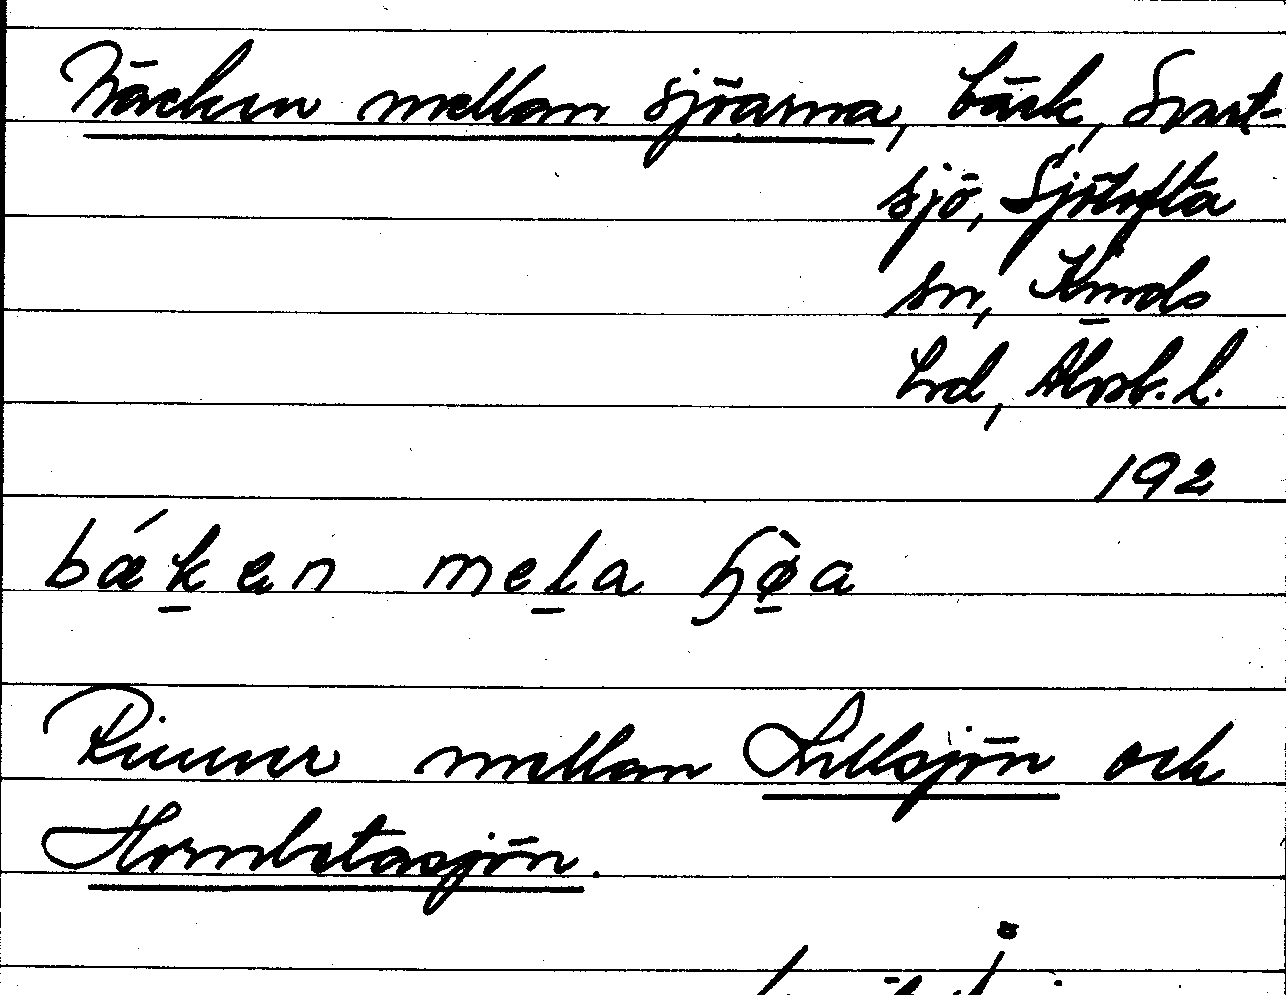 Bäcken mellan sjöarna, bäck, Svart-
sjö, Sjötofta
sn, Kinds
hd, Älvsb. l.
192
bǽken mela ɧø̀a
Rinner mellan Lillsjön och
Hornbetasjön.